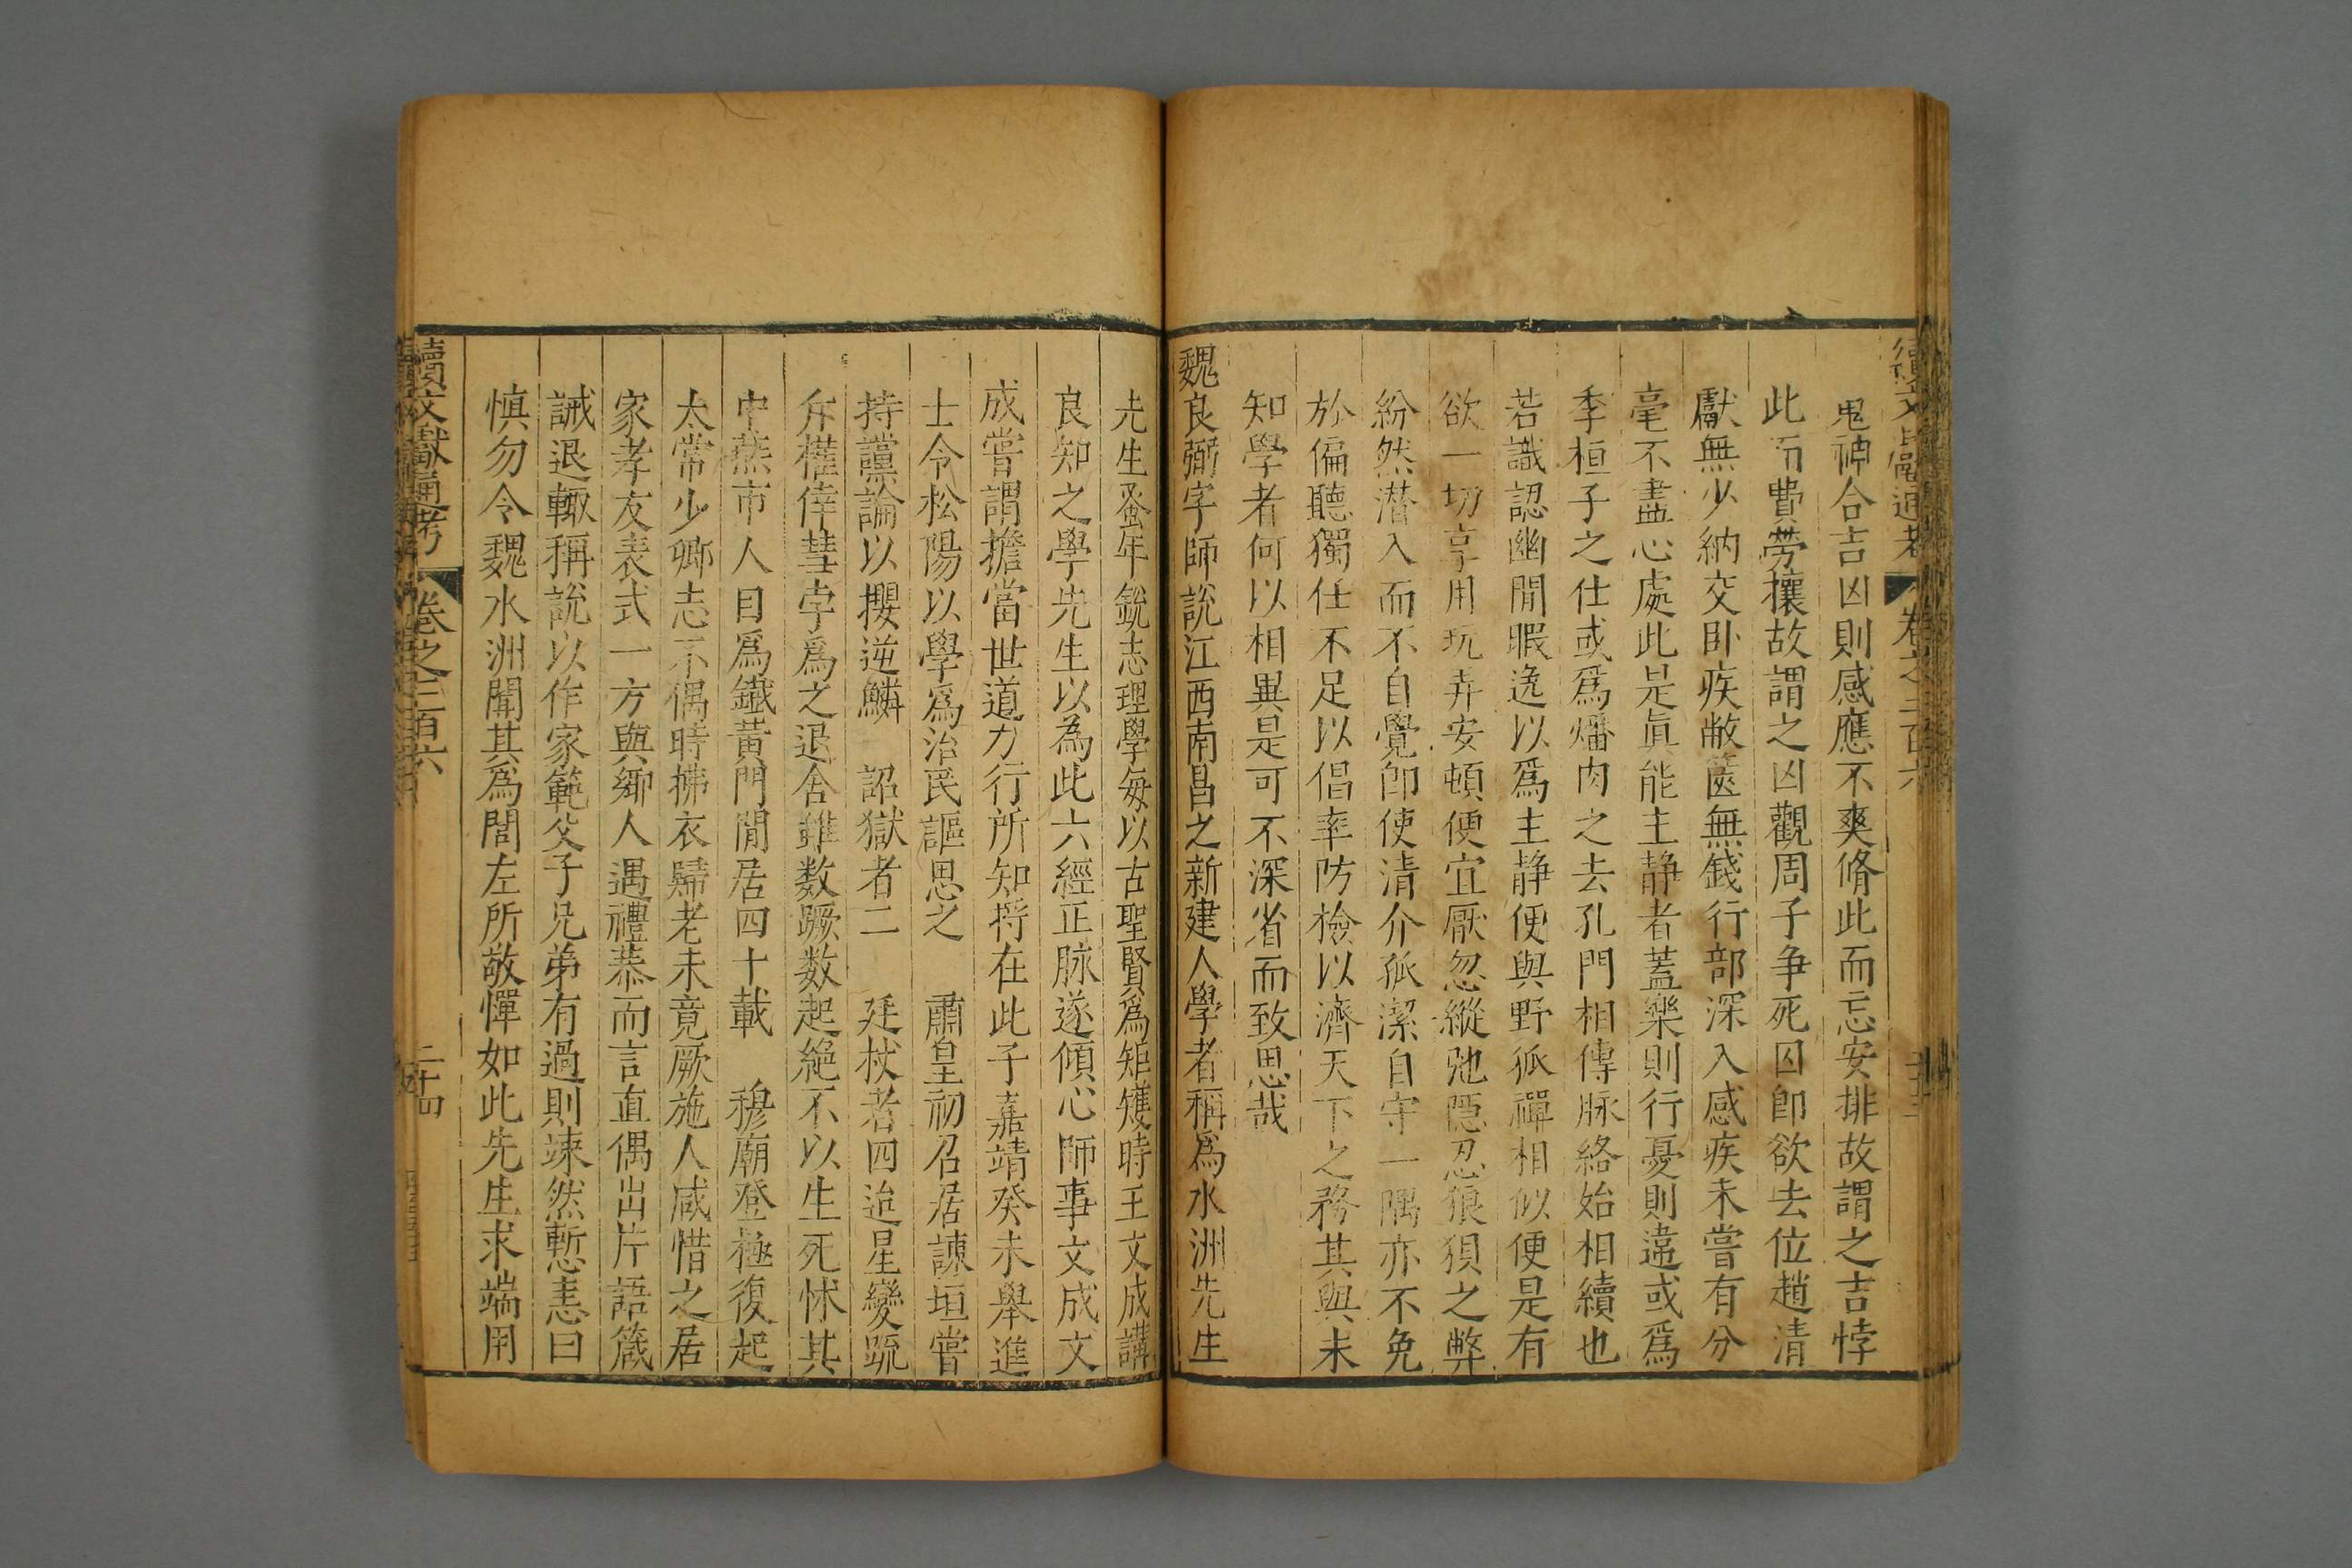 續文獻通考 卷之二百六
鬼神合吉凶則感應不爽脩此而忘安排故謂之吉悖
此而費勞攘故謂之凶觀周子争死囚即欲去位趙清
獻無少納交卧疾敝篋無錢行部深入感疾未嘗有分
毫不盡心處此是眞能主静者蓋樂則行憂則違或爲
季桓子之仕或爲燔肉之去孔門相傳脉絡始相續也
若識認幽閒暇逸以爲主静便與野狐禪相似便是有
欲一切享用玩弄安頓便宜厭忽縱弛隱忍狼狽之弊
紛然潜入而不自覺即使清介孤潔自守一隅亦不免
於偏聽獨任不足以倡率防檢以濟天下之務其與未
知學者何以相異是可不深省而致思哉
魏良弼字師說江西南昌之新建人學者稱爲水洲先生
先生蚤年銳志理學每以古聖賢爲矩矱時王文成講
良知之學先生以為此六經正脉遂傾心師事文成文
成嘗謂擔當世道力行所知將在此子嘉靖癸未舉進
士令松陽以學爲治民謳思之 肅皇初召居諫垣嘗
持讜論以攖逆鱗 詔獄者二 廷杖者四迨星變疏
斥權倖彗孛爲之退舍雖数蹶数起絶不以生死怵其
中燕市人目爲鐵黄門閒居四十載 穆廟登極復起
太常少卿志不偶時拂衣歸老未竟厥施人咸惜之居
家孝友表式一方與鄉人遇禮恭而言直偶出片語箴
誡退輙稱說以作家範父子兄弟有過則竦然慙恚曰
慎勿令魏水洲聞其爲閭左所敬憚如此先生求端用
續文獻通考 卷之二百六 二十四